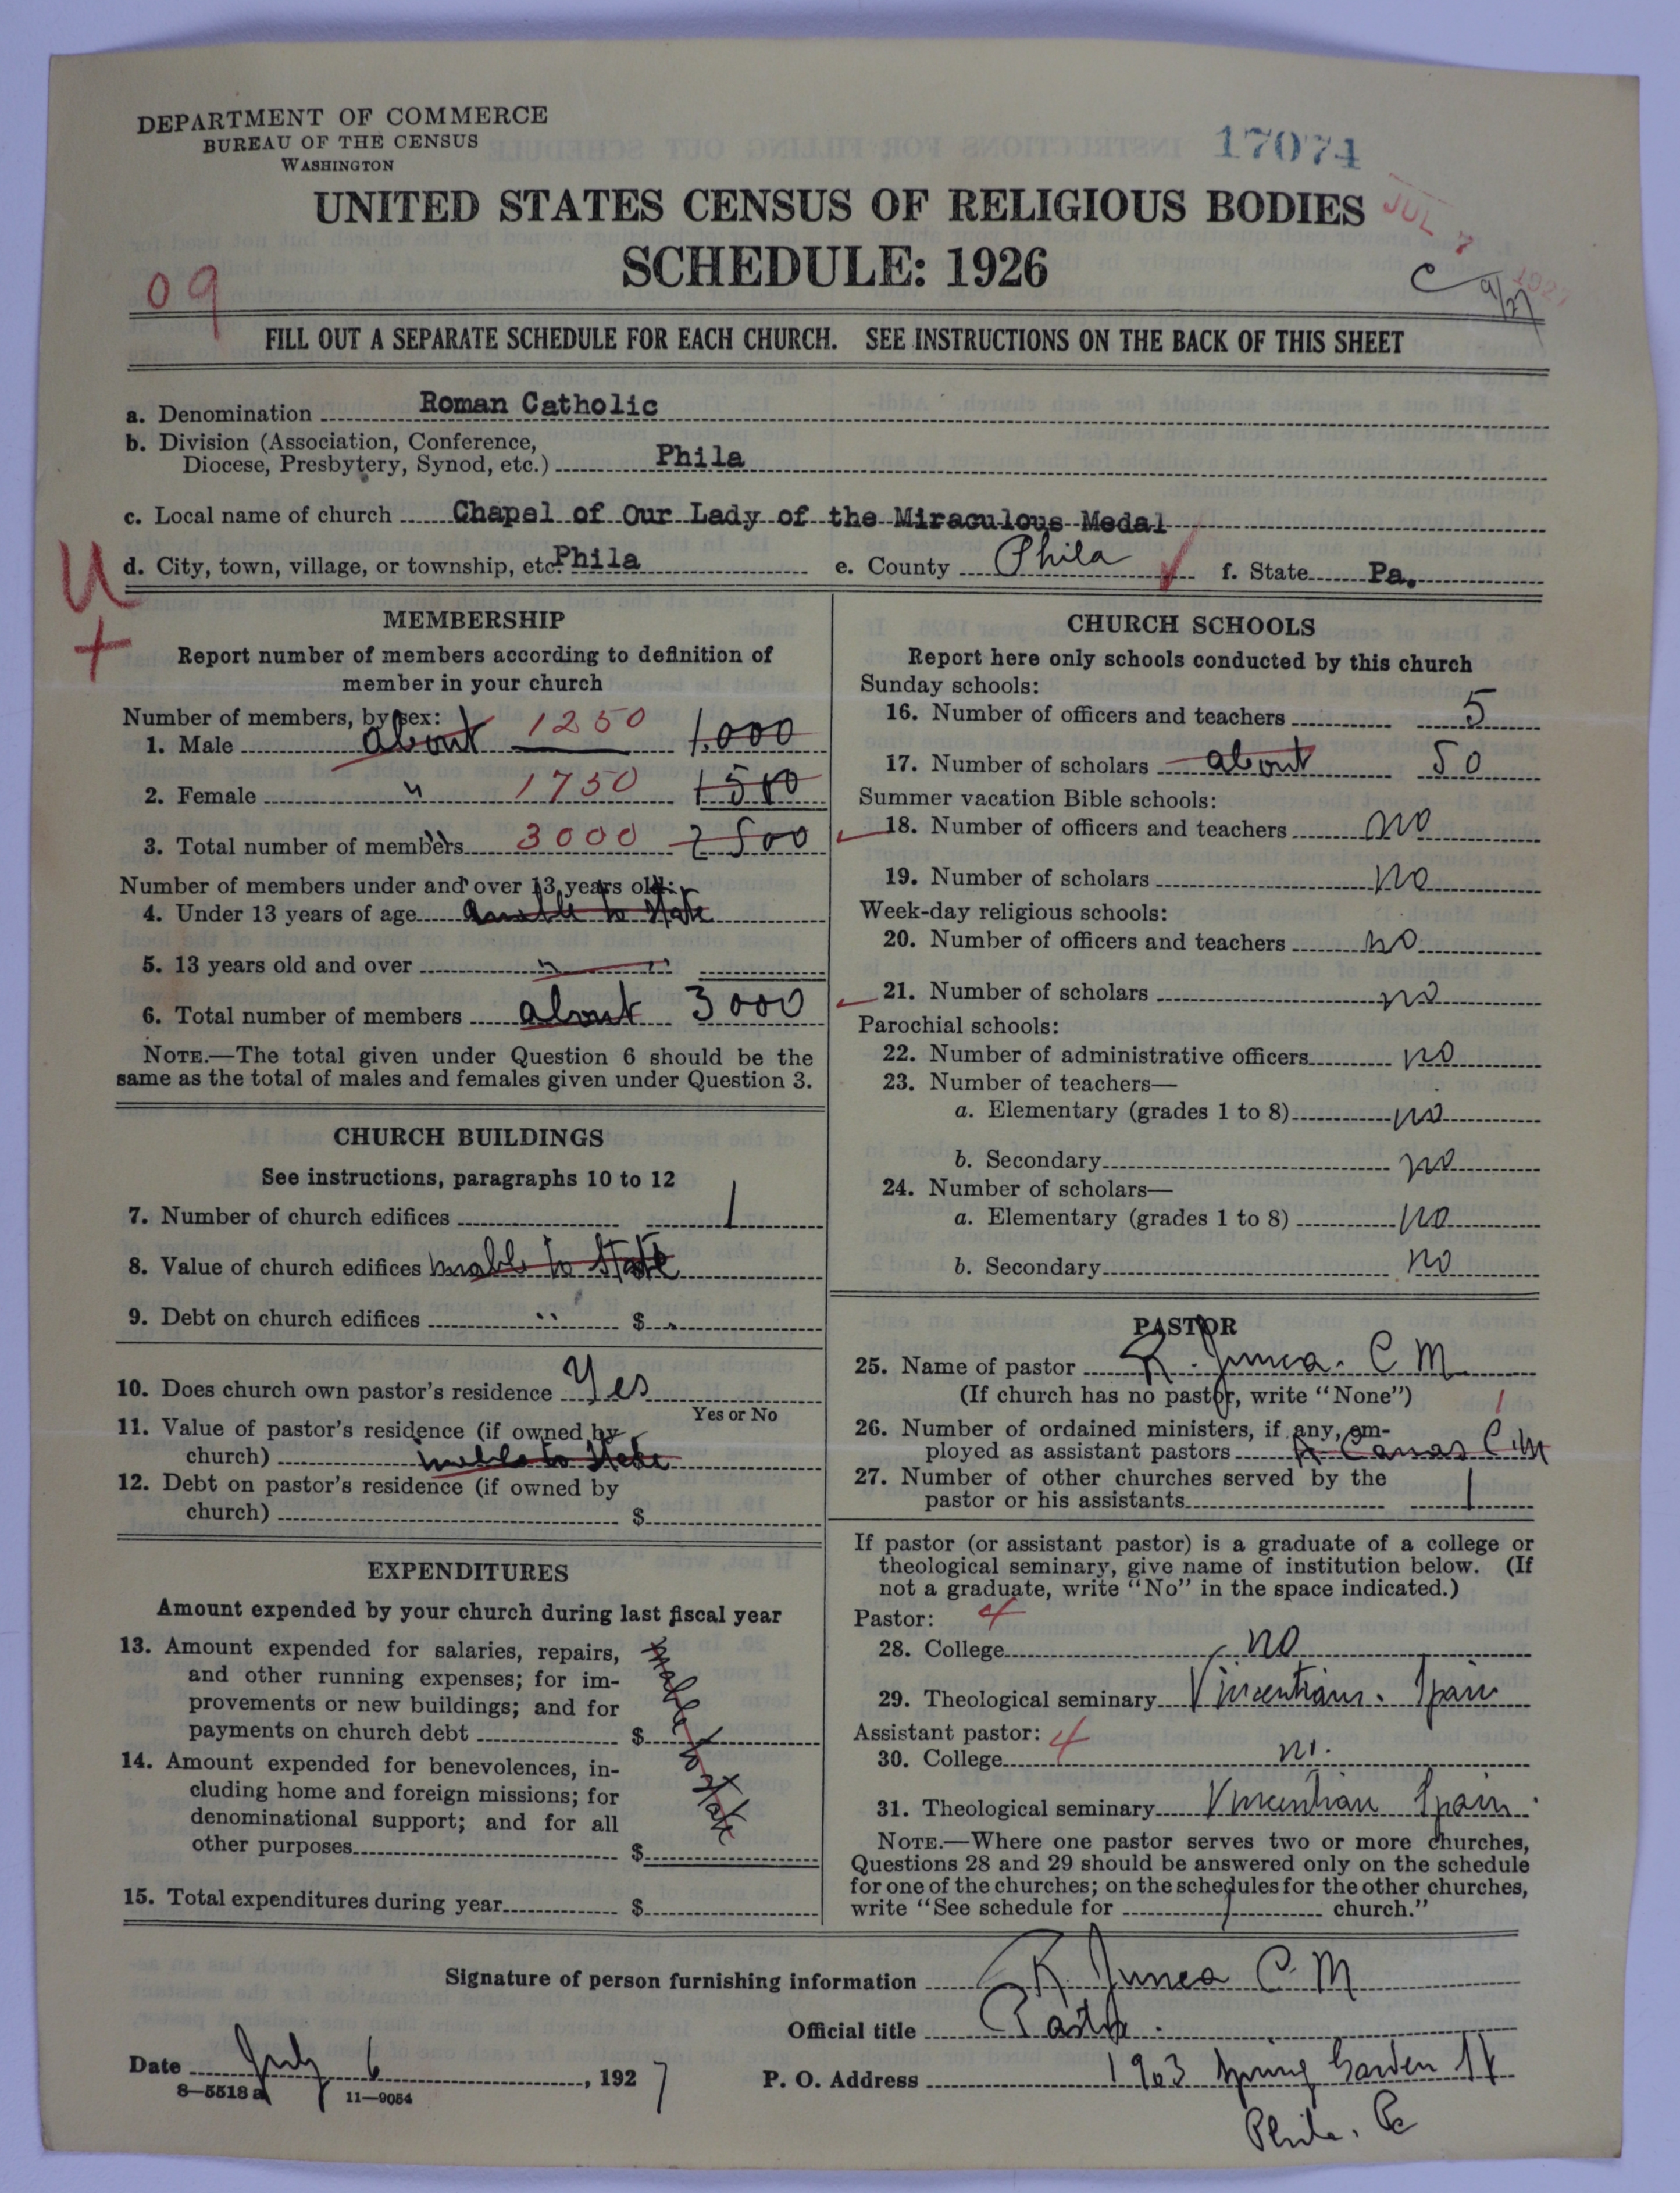 DEPARTMENT OF COMMERCE
BUREAU OF THE CENSUS
WASHINGTON
17074
UNITED STATES CENSUS OF RELIGIOUS BODIES
JUL 7 1927
SCHEDULE: 1926
09
C 9/27
FILL OUT A SEPARATE SCHEDULE FOR EACH CHURCH. SEE INSTRUCTIONS ON THE BACK OF THIS SHEET
a. Denomination Roman Catholic
b. Division (Association, Conference,
Diocese, Presbytery, Synod, etc.) Phila
c. Local name of church Chapel of Our Lady of the Miraculous Medal
U
d. City, town, village, or township, etc. Phila e. County Phila f. State Pa.
+
MEMBERSHIP
Report number of members according to definition of
member in your church
Number of members, by sex:
1. Male about 1250 1,000
2. Female " 1750 1500
3. Total number of members 3000 2500
Number of members under and over 13 years old:
4. Under 13 years of age unable to state
5. 13 years old and over " "
6. Total number of members about 3000
NOTE.—The total given under Question 6 should be the
same as the total of males and females given under Question 3.
CHURCH BUILDINGS
See instructions, paragraphs 10 to 12
7. Number of church edifices 1
8. Value of church edifices unable to state
9. Debt on church edifices " $
10. Does church own pastor's residence Yes
Yes or No
11. Value of pastor's residence (if owned by
church) unable to state
12. Debt on pastor's residence (if owned by
church) $
EXPENDITURES
Amount expended by your church during last fiscal year
13. Amount expended for salaries, repairs,
and other running expenses; for im-
provements or new buildings; and for
payments on church debt $
unable to state
14. Amount expended for benevolences, in-
cluding home and foreign missions; for
denominational support; and for all
other purposes $
15. Total expenditures during year $
CHURCH SCHOOLS
Report here only schools conducted by this church
Sunday schools:
16. Number of officers and teachers 5
17. Number of scholars about 50
Summer vacation Bible schools:
18. Number of officers and teachers no
19. Number of scholars no
Week-day religious schools:
20. Number of officers and teachers no
21. Number of scholars no
Parochial schools:
22. Number of administrative officers no
23. Number of teachers—
a. Elementary (grades 1 to 8) no
b. Secondary no
24. Number of scholars—
a. Elementary (grades 1 to 8) no
b. Secondary no
PASTOR
25. Name of pastor R. C M
(If church has no pastor, write "None")
26. Number of ordained ministers, if any, em- 1
ployed as assistant pastors C.M
27. Number of other churches served by the
pastor or his assistants 1
If pastor (or assistant pastor) is a graduate of a college or
theological seminary, give name of institution below. (If
not a graduate, write "No" in the space indicated.)
Pastor: 4
28. College no
29. Theological seminary Vincentians. Spain
Assistant pastor: 4
30. College no.
31. Theological seminary Vincentian Spain.
NOTE.—Where one pastor serves two or more churches,
Questions 28 and 29 should be answered only on the schedule
for one of the churches; on the schedules for the other churches,
write "See schedule for church."
Signature of person furnishing information R. C. M
Official title Pastor.
Date July 6, 1927 P. O. Address 1903 Spring Garden St
8—5518 a 11—9054
Phila. Pa